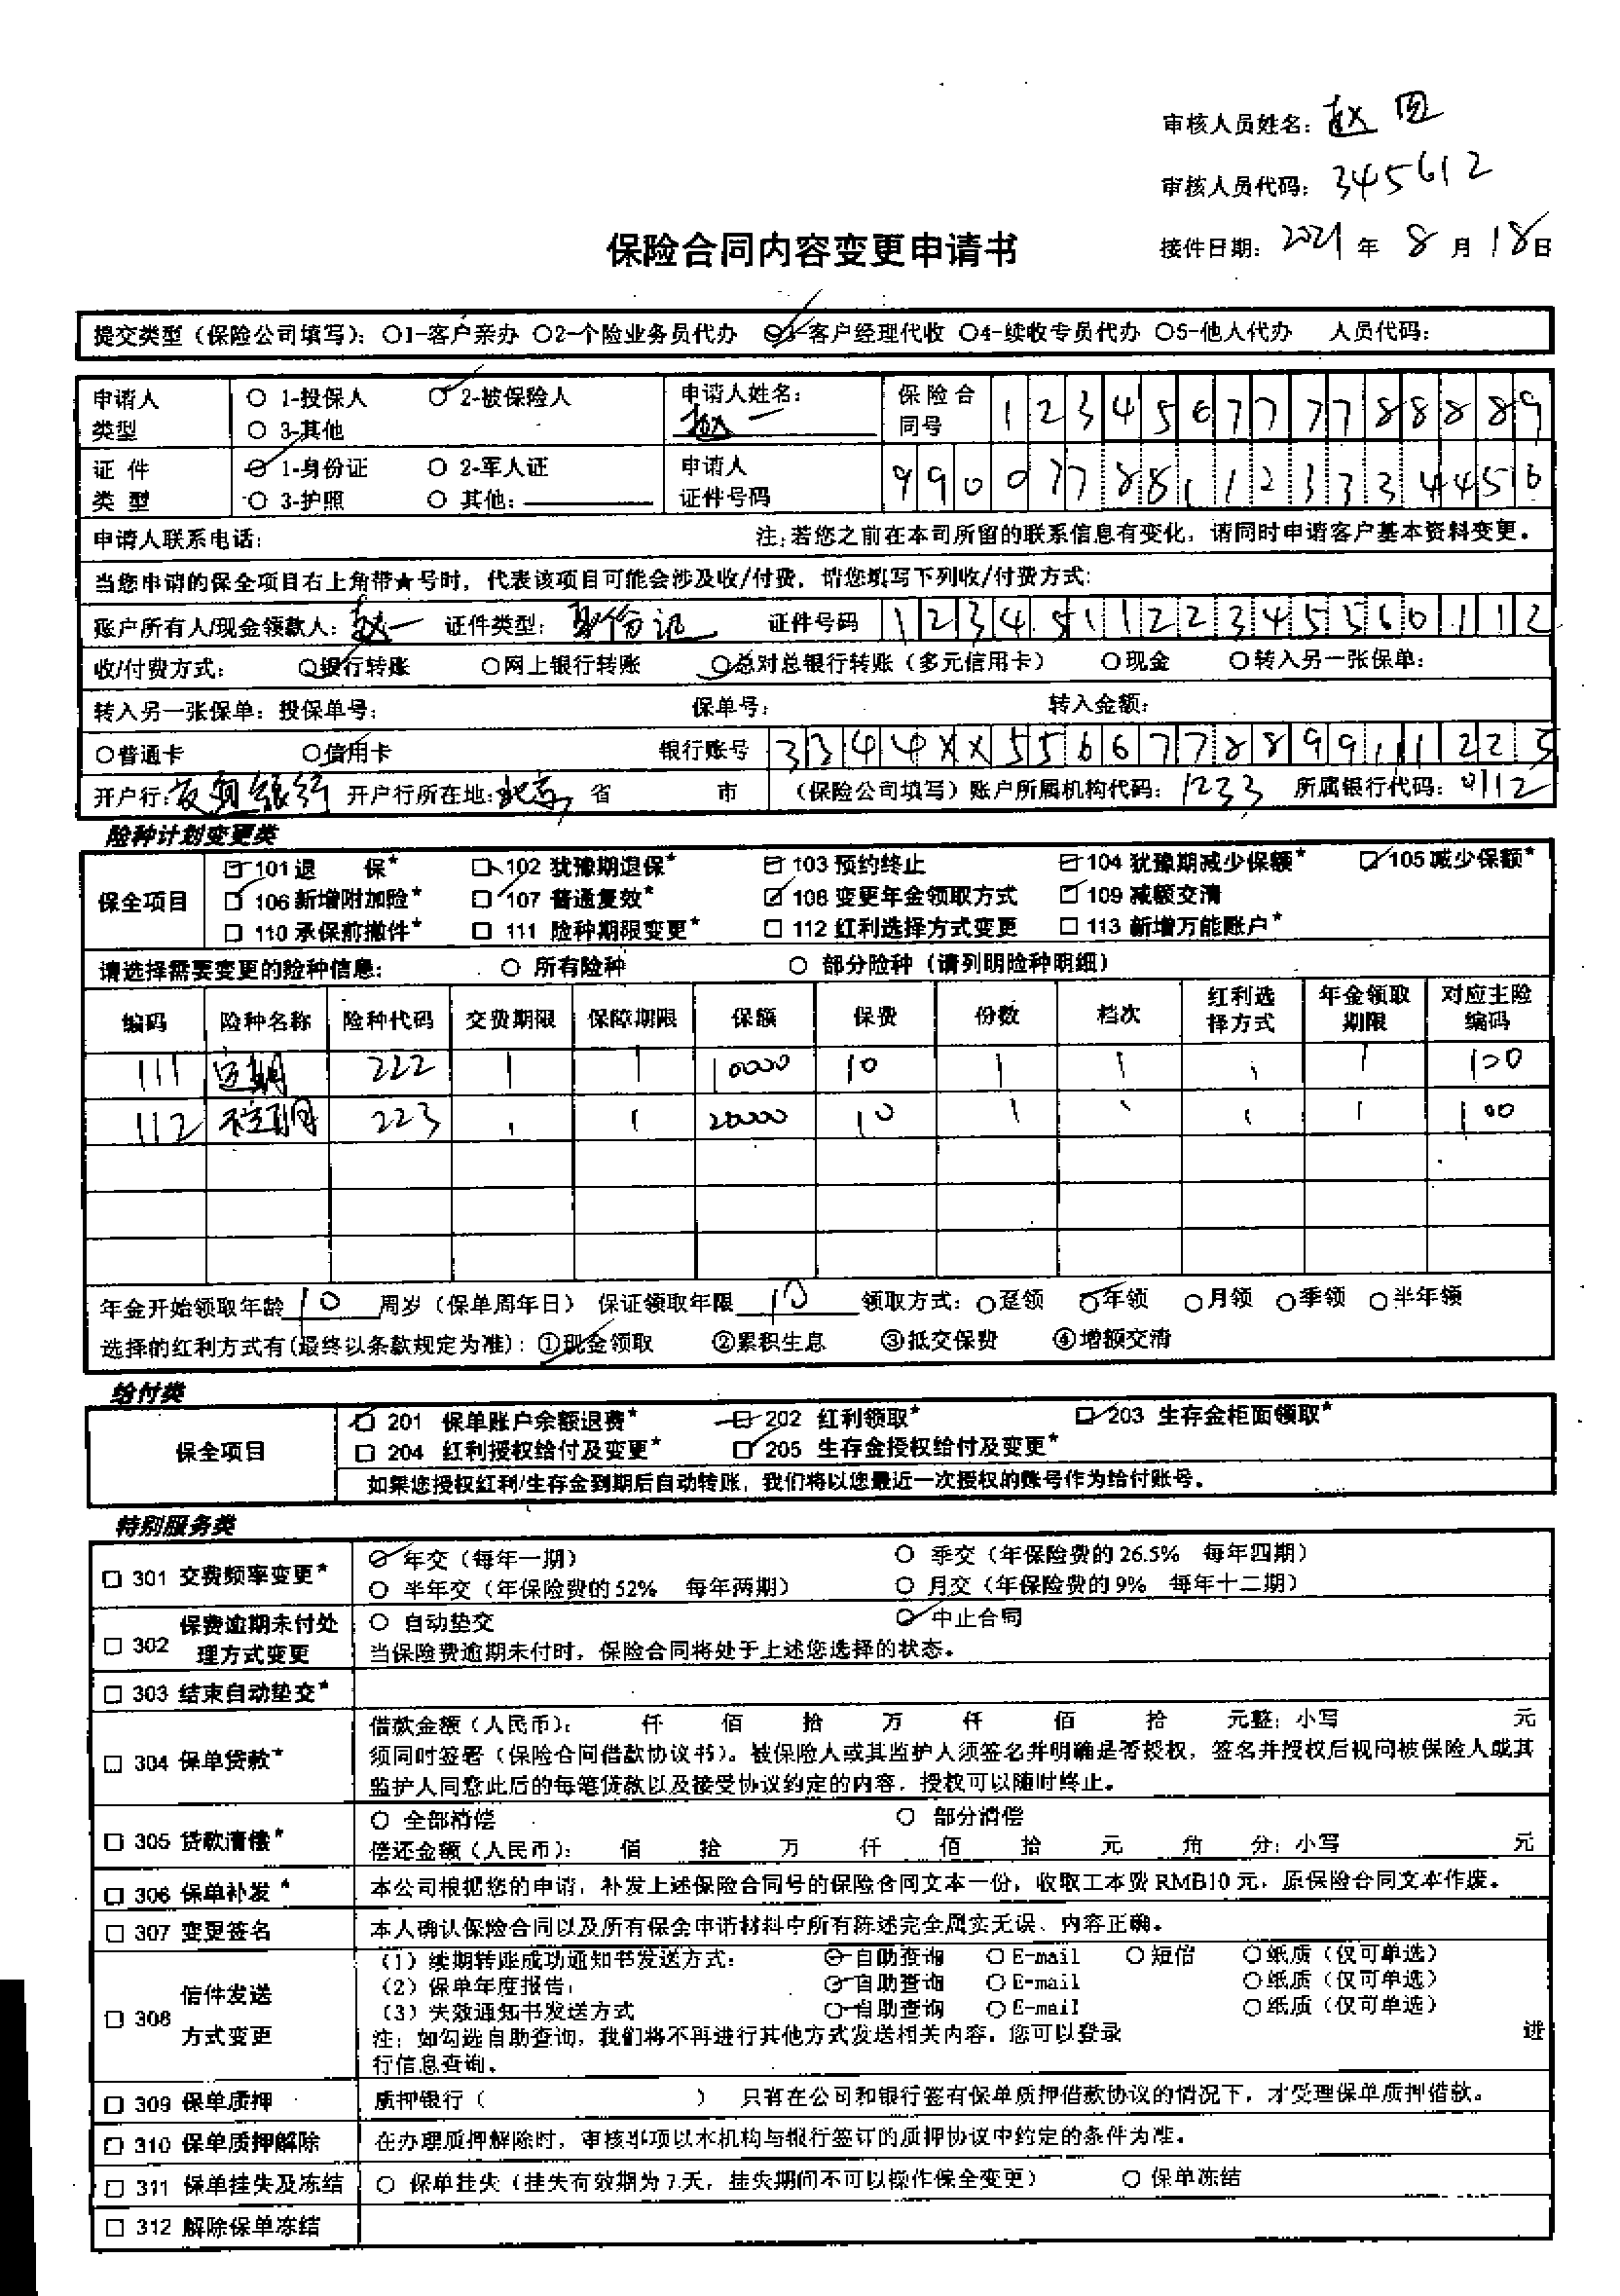 审核人员姓名：赵
审核人员代码：345612
接件日期：2021年8月18日
保险合同内容变更申请书
提交类型（保险公司填写）：○1-客户亲办 ○2-个险业务员代办 ○3-客户经理代收 ○4-续收专员代办 ○5-他人代办 人员代码：
申请人类型 ○ 1-投保人 ○ 2-被保险人 ○ 3-其他 申请人姓名：赵一 保险合同号 123456777788889
证件类型 ○ 1-身份证 ○ 2-军人证 ○ 3-护照 ○ 其他： 申请人证件号码 990077881123334456
申请人联系电话： 注：若您之前在本司所留的联系信息有变化，请同时申请客户基本资料变更。
当您申请的保全项目右上角带★号时，代表该项目可能会涉及收/付费，请您填写下列收/付费方式：
账户所有人/现金领款人：赵一 证件类型：身份证 证件号码 123451122345560112
收/付费方式： ○银行转账 ○网上银行转账 ○总对总银行转账（多元信用卡） ○现金 ○转入另一张保单：
转入另一张保单：投保单号： 保单号： 转入金额：
○普通卡 ○信用卡 银行账号 3344XX556677889911225
开户行：银行 开户行所在地：北京 省 市 （保险公司填写）账户所属机构代码：1233 所属银行代码：0112
险种计划变更类
保全项目
□ 101 退 保* □ 102 犹豫期退保* □ 103 预约终止 □ 104 犹豫期减少保额* □ 105 减少保额*
□ 106 新增附加险* □ 107 普通复效* □ 108 变更年金领取方式 □ 109 减额交清
□ 110 承保前撤件* □ 111 险种期限变更* □ 112 红利选择方式变更 □ 113 新增万能账户*
请选择需要变更的险种信息： ○ 所有险种 ○ 部分险种（请列明险种明细）
编码 险种名称 险种代码 交费期限 保障期限 保额 保费 份数 档次 红利选择方式 年金领取期限 对应主险编码
111 222 1 1 10000 10 1 1 1 1 100
112 223 1 1 20000 10 1 1 1 1 100
年金开始领取年龄10周岁（保单周年日） 保证领取年限10领取方式：○趸领 ○年领 ○月领 ○季领 ○半年领
选择的红利方式有(最终以条款规定为准)：①现金领取 ②累积生息 ③抵交保费 ④增额交清
给付类
保全项目
□ 201 保单账户余额退费* □ 202 红利领取* □ 203 生存金柜面领取*
□ 204 红利授权给付及变更* □ 205 生存金授权给付及变更*
如果您授权红利/生存金到期后自动转账，我们将以您最近一次授权的账号作为给付账号。
特别服务类
□ 301 交费频率变更* ○ 年交（每年一期） ○ 季交（年保险费的26.5% 每年四期）
○ 半年交（年保险费的52% 每年两期） ○ 月交（年保险费的9% 每年十二期）
□ 302 保费逾期未付处理方式变更 ○ 自动垫交 ○ 中止合同
当保险费逾期未付时，保险合同将处于上述您选择的状态。
□ 303 结束自动垫交*
□ 304 保单贷款* 借款金额（人民币）： 仟 佰 拾 万 仟 佰 拾 元整；小写 元
须同时签署（保险合同借款协议书）。被保险人或其监护人须签名并明确是否授权，签名并授权后视同被保险人或其
监护人同意此后的每笔贷款以及接受协议约定的内容，授权可以随时终止。
□ 305 贷款清偿* ○ 全部清偿 ○ 部分清偿
偿还金额（人民币）： 佰 拾 万 仟 佰 拾 元 角 分；小写 元
□ 306 保单补发* 本公司根据您的申请，补发上述保险合同号的保险合同文本一份，收取工本费RMB10元，原保险合同文本作废。
□ 307 变更签名 本人确认保险合同以及所有保全申请材料中所有陈述完全属实无误、内容正确。
□ 308 信件发送方式变更 （1）续期转账成功通知书发送方式： ○自助查询 ○E-mail ○短信 ○纸质（仅可单选）
（2）保单年度报告： ○自助查询 ○E-mail ○纸质（仅可单选）
（3）失效通知书发送方式 ○自助查询 ○E-mail ○纸质（仅可单选）
注：如勾选自助查询，我们将不再进行其他方式发送相关内容，您可以登录 进
行信息查询。
□ 309 保单质押 质押银行（ ） 只有在公司和银行签有保单质押借款协议的情况下，才受理保单质押借款。
□ 310 保单质押解除 在办理质押解除时，审核事项以本机构与银行签订的质押协议中约定的条件为准。
□ 311 保单挂失及冻结 ○ 保单挂失（挂失有效期为7天，挂失期间不可以操作保全变更） ○ 保单冻结
□ 312 解除保单冻结